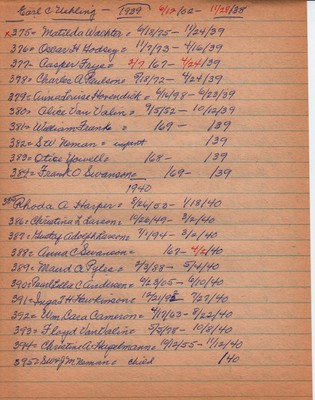 Earl C Uehling - 1939 4/17/02 - 11/28/38
x375= Matilda Wachter = 4/18/75 - 11/24/39
376= Oscar H Hodsey = 11/7/73 - 4/16/39
377= Casper Faye = 2/7/67 - 4/24/39
378= Charles A Paulson = 9/18/72 - 4/24/39
379= Anna Louise Hovendick = 4/4/98 - 6/23/39
380= Alice Van Valin = 9/5/52 - 10/12/39
381= William Franke = 169 - /39
382= S.W. Neman = infant /39
383= Otice Yowell = 168 - /39
384= Frank O Swanson = 169 - /39
1940
385= Rhoda A Harper = 8/26/53 - 1/18/40
386= Christina L Larson = 10/26/49 - 3/2/40
387= Gustaf Adolph Larson = 7/1/94 - 3/2/40
388= Anna C Swanson = 167 - 4/2/40
389= Maud A Pyles = 2/3/88 - 5/4/40
390= Andersen = 6/23/05 - 6/10/40
391= Inga H Hawkinson = 10/21/92 - 7/27/40
392= Wm Caca Cameron = 4/17/63 - 8/22/40
393= Floyd Van Valin = 5/5/98 - 10/8/40
394= Christine A Hegelmann = 10/12/55 - 11/12/40
395= Swrg M Neman = Child /40